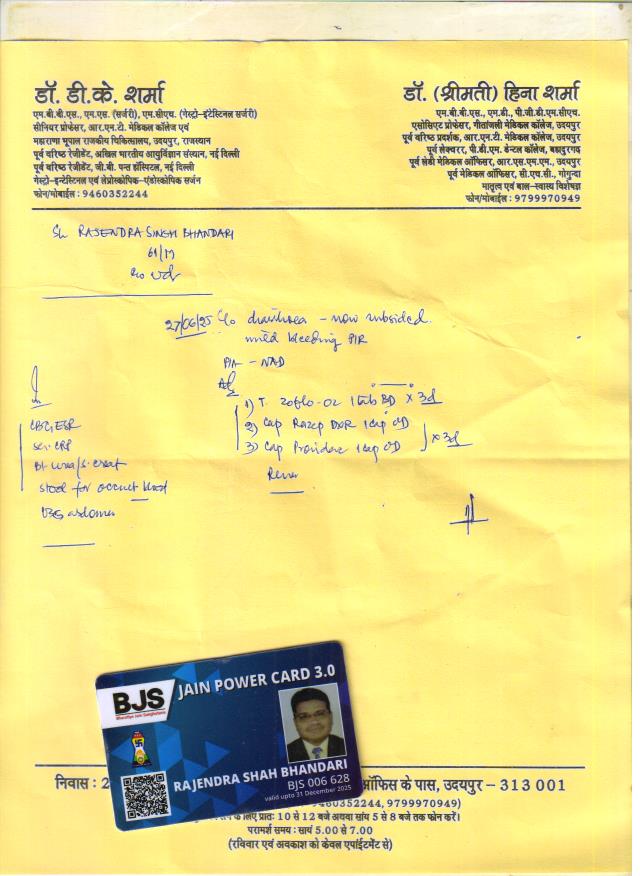 डॉ. डी.के. शर्मा
एम.बी.बी.एस., एम.एस. (सर्जरी), एम.सीएच. (गेस्ट्रो-इंटेस्टिनल सर्जरी)
सीनियर प्रोफेसर, आर.एन.टी. मेडिकल कॉलेज एवं
महाराणा भूपाल राजकीय चिकित्सालय, उदयपुर, राजस्थान
पूर्व वरिष्ठ रेजीडेंट, अखिल भारतीय आयुर्विज्ञान संस्थान, नई दिल्ली
पूर्व वरिष्ठ रेजीडेंट, जी.बी. पन्त हॉस्पिटल, नई दिल्ली
गेस्ट्रो-इन्टेस्टिनल एवं लेप्रोस्कोपिक-एंडोस्कोपिक सर्जन
फोन/मोबाईल : 9460352244
डॉ. (श्रीमती) हिना शर्मा
एम.बी.बी.एस., एम.डी., पी.जी.डी.एम.सीएच.
एसोसिएट प्रोफेसर, गीतांजली मेडिकल कॉलेज, उदयपुर
पूर्व वरिष्ठ प्रदर्शक, आर.एन.टी. मेडिकल कॉलेज, उदयपुर
पूर्व लेक्चरर, पी.डी.एम. डेन्टल कॉलेज, बहादुरगढ़
पूर्व लेडी मेडिकल ऑफिसर, आर.एस.एम.एम., उदयपुर
पूर्व मेडिकल ऑफिसर, सी.एच.सी., गोगुन्दा
मातृत्व एवं बाल-स्वास्थ्य विशेषज्ञ
फोन/मोबाईल : 9799970949
RAJENDRA SINGH BHANDARI
61/M
27/06/25 c/o diarrhoea - now subsided.
mild bleeding P/R
P/A - NAD
1) T. Zoflo-OZ 1 tab BD x 3d
2) Cap Razep DXR 1 cap OD
3) Cap Providac 1 cap OD x 3d
CBC/ESR
ser. CRP
Bl. urea/s. creat
stool for occult blood
USG abdomen
BJS
JAIN POWER CARD 3.0
RAJENDRA SHAH BHANDARI
BJS 006 628
valid upto 31 December 2025
निवास : 2 ऑफिस के पास, उदयपुर – 313 001
9460352244, 9799970949)
के लिए प्रातः 10 से 12 बजे अथवा सांय 5 से 8 बजे तक फोन करें।
परामर्श समय : सायं 5.00 से 7.00
(रविवार एवं अवकाश को केवल एपॉइंटमेंट से)